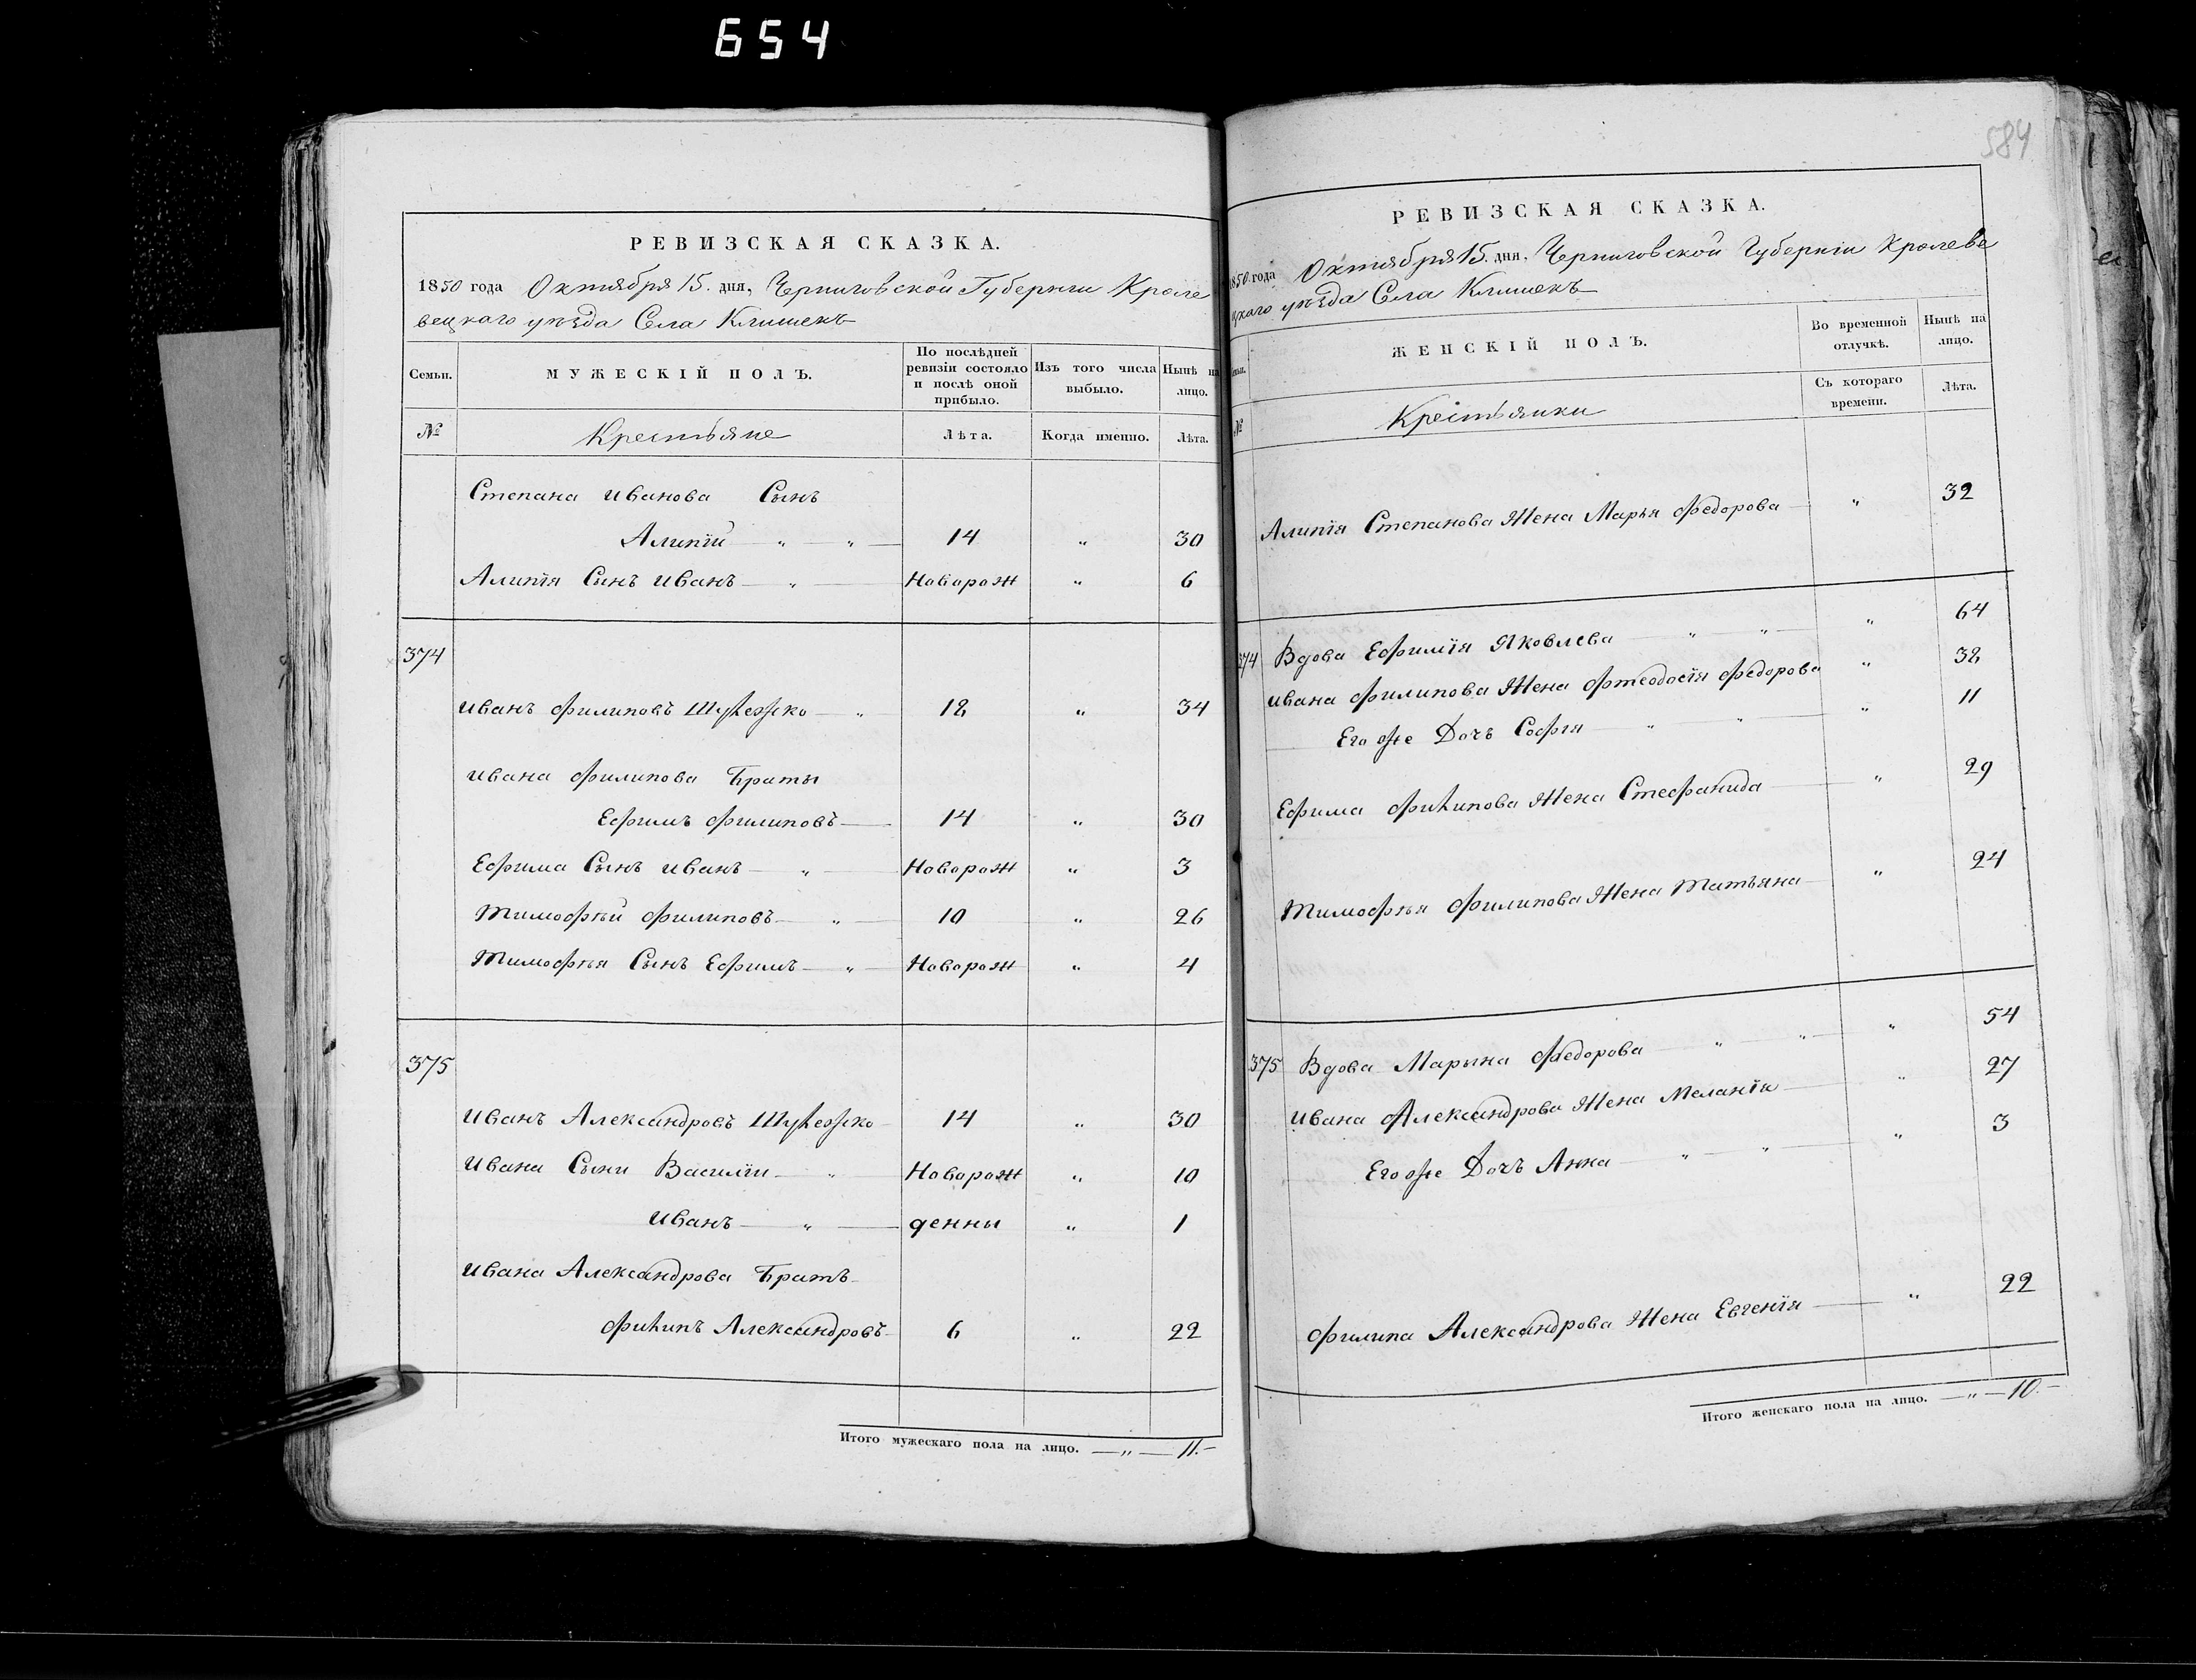 654
РЕВИЗСКАЯ СКАЗКА.
1850 года Октября 15. дня, Черниговской Губернии Кроле
вецкаго уѣзда Села Клишекъ
Семьи.
МУЖЕСКІЙ ПОЛЪ.
По послѣдней ревизіи состояло и послѣ оной прибыло.
Изъ того числа выбыло.
Нынѣ на лицо.
№ Крестьяне Лѣта. Когда именно. Лѣта.
Степана Иванова Сынъ
Алипій 14 " 30
Алипія Сынъ Иванъ Новорож " 6
374
Иванъ Филиповъ 18 " 34
Ивана Филипова Браты
Ефимъ Филиповъ 14 " 30
Ефима Сынъ Иванъ Новорож " 3
Тимофѣй Филиповъ 10 " 26
Тимофѣя Сынъ Ефимъ Новорож " 4
375
Иванъ Александровъ 14 " 30
Ивана Сыни Василіи Новорож " 10
Иванъ денны " 1
Ивана Александрова Братъ
Филипъ Александровъ 6 " 22
Итого мужескаго пола на лицо. — " — 11.
584
РЕВИЗСКАЯ СКАЗКА.
1850 года Октября 15. дня, Черниговской Губерніи Кролеве
цкаго уѣзда Села Клишекъ
Семьи.
ЖЕНСКІЙ ПОЛЪ.
Во временной отлучкѣ.
Нынѣ на лицо.
Съ котораго времени.
Лѣта.
№ Крестьянки
Алипія Степанова Жена Марья Федорова " 32
374 Вдова Ефимія Яковлева " 64
Ивана Филипова Жена Феодосія Федорова " 38
Его же Дочъ Софія " 11
Ефима Филипова Жена Стефанида " 29
Тимофѣя Филипова Жена Татьяна " 24
375 Вдова Марына Федорова " 54
Ивана Александрова Жена Меланія " 27
Его же Дочъ Анна " 3
Филипа Александрова Жена Евгенія " 22
Итого женскаго пола на лицо. — " — 10.